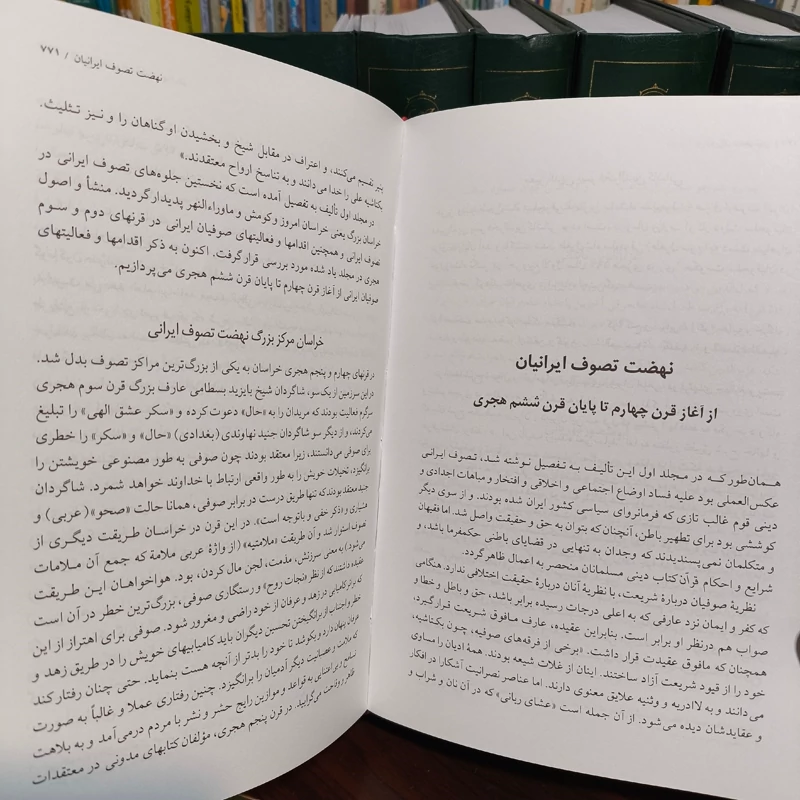 نهضت تصوف ایرانیان
از آغاز قرن چهارم تا پایان قرن ششم هجری
همان‌طور که در مجلد اول این تألیف به تفصیل نوشته شد، تصوف ایرانی
عکس‌العملی بود علیه فساد اوضاع اجتماعی و اخلاقی و افتخار و مباهات اجدادی و
دینی قوم غالب تازی که فرمانروای سیاسی کشور ایران شده بودند. و از سوی دیگر
کوششی بود برای تطهیر باطن، آنچنان‌که بتوان به حق و حقیقت واصل شد. اما فقیهان
و متکلمان نمی‌پسندیدند که وجدان به تنهایی در قضایای باطنی حکمفرما باشد، و
شرایع و احکام قرآن کتاب دینی مسلمانان منحصر به اعمال ظاهر گردد.
نظریهٔ صوفیان دربارهٔ شریعت، با نظریهٔ آنان دربارهٔ حقیقت اختلافی ندارد. هنگامی
که کفر و ایمان نزد عارفی که به اعلی درجات رسیده برابر باشد، حق و باطل و خطا و
صواب هم درنظر او برابر است. بنابراین عقیده، عارف مافوق شریعت قرار گیرد،
همچنان که مافوق عقیدت قرار داشت. «برخی از فرقه‌های صوفیه، چون بکتاشیه،
خود را از قیود شریعت آزاد ساختند. اینان از غلات شیعه بودند. همهٔ ادیان را مساوی
می‌دانند و به لاادریه و وثنیه علایق معنوی دارند. اما عناصر نصرانیت آشکارا در افکار
و عقایدشان دیده می‌شود. از آن جمله است «عشای ربانی» که در آن نان و شراب و
نهضت تصوف ایرانیان / ۷۷۱
پنیر تقسیم می‌کنند، و اعتراف در مقابل شیخ و بخشیدن او گناهان را و نیز تثلیث.
بکتاشیه علی را خدا می‌دانند و به تناسخ ارواح معتقدند.»
در مجلد اول تألیف به تفصیل آمده است که نخستین جلوه‌های تصوف ایرانی در
خراسان بزرگ یعنی خراسان امروز و کومش و ماوراءالنهر پدیدار گردید. منشأ و اصول
تصوف ایرانی و همچنین اقدامها و فعالیتهای صوفیان ایرانی در قرنهای دوم و سوم
هجری در مجلد یاد شده مورد بررسی قرار گرفت. اکنون به ذکر اقدامها و فعالیتهای
صوفیان ایرانی از آغاز قرن چهارم تا پایان قرن ششم هجری می‌پردازیم.
خراسان مرکز بزرگ نهضت تصوف ایرانی
در قرنهای چهارم و پنجم هجری خراسان به یکی از بزرگ‌ترین مراکز تصوف بدل شد.
در این سرزمین از یک سو، شاگردان شیخ بایزید بسطامی عارف بزرگ قرن سوم هجری
سرگرم فعالیت بودند که مریدان را به «حال» دعوت کرده و «سکر عشق الهی» را تبلیغ
می‌کردند، و از دیگر سو شاگردان جنید نهاوندی (بغدادی) «حال» و «سکر» را خطری
برای صوفی می‌دانستند، زیرا معتقد بودند چون صوفی به طور مصنوعی خویشتن را
برانگیزد، تخیلات خویش را به طور واقعی ارتباط با خداوند خواهد شمرد. شاگردان
جنید معتقد بودند که تنها طریق درست در برابر صوفی، همانا حالت «صحو» (عربی) و
هشیاری و «ذکر خفی و با توجه است». در این قرن در خراسان طریقت دیگری از
تصوف استوار شد و آن طریقت «ملامتیه» (از واژهٔ عربی ملامة که جمع آن ملامات
می‌شود) به معنی سرزنش، مذمت، لجن مال کردن، بود. هواخواهان این طریقت
عقیده داشتند که از نظر «نجات روح» و رستگاری صوفی، بزرگ‌ترین خطر در آن است
که بر اثر کامیابی در زهد و عرفان از خود راضی و مغرور شود. صوفی برای احتراز از این
خطر و اجتناب از برانگیختن تحسین دیگران باید کامیابیهای خویش را در طریق زهد و
عرفان پنهان دارد و بکوشد تا خود را بدتر از آنچه هست بنماید. حتی چنان رفتار کند
که ملامت و عصبانیت دیگر آدمیان را برانگیزد. چنین رفتاری عملا و غالباً به صورت
تسامح و بی‌اعتنایی به قواعد و موازین رایج حشر و نشر با مردم درمی‌آمد و به بلاهت
ظاهر و وقاحت می‌گرایید. در قرن پنجم هجری، مؤلفان کتابهای مدونی در معتقدات